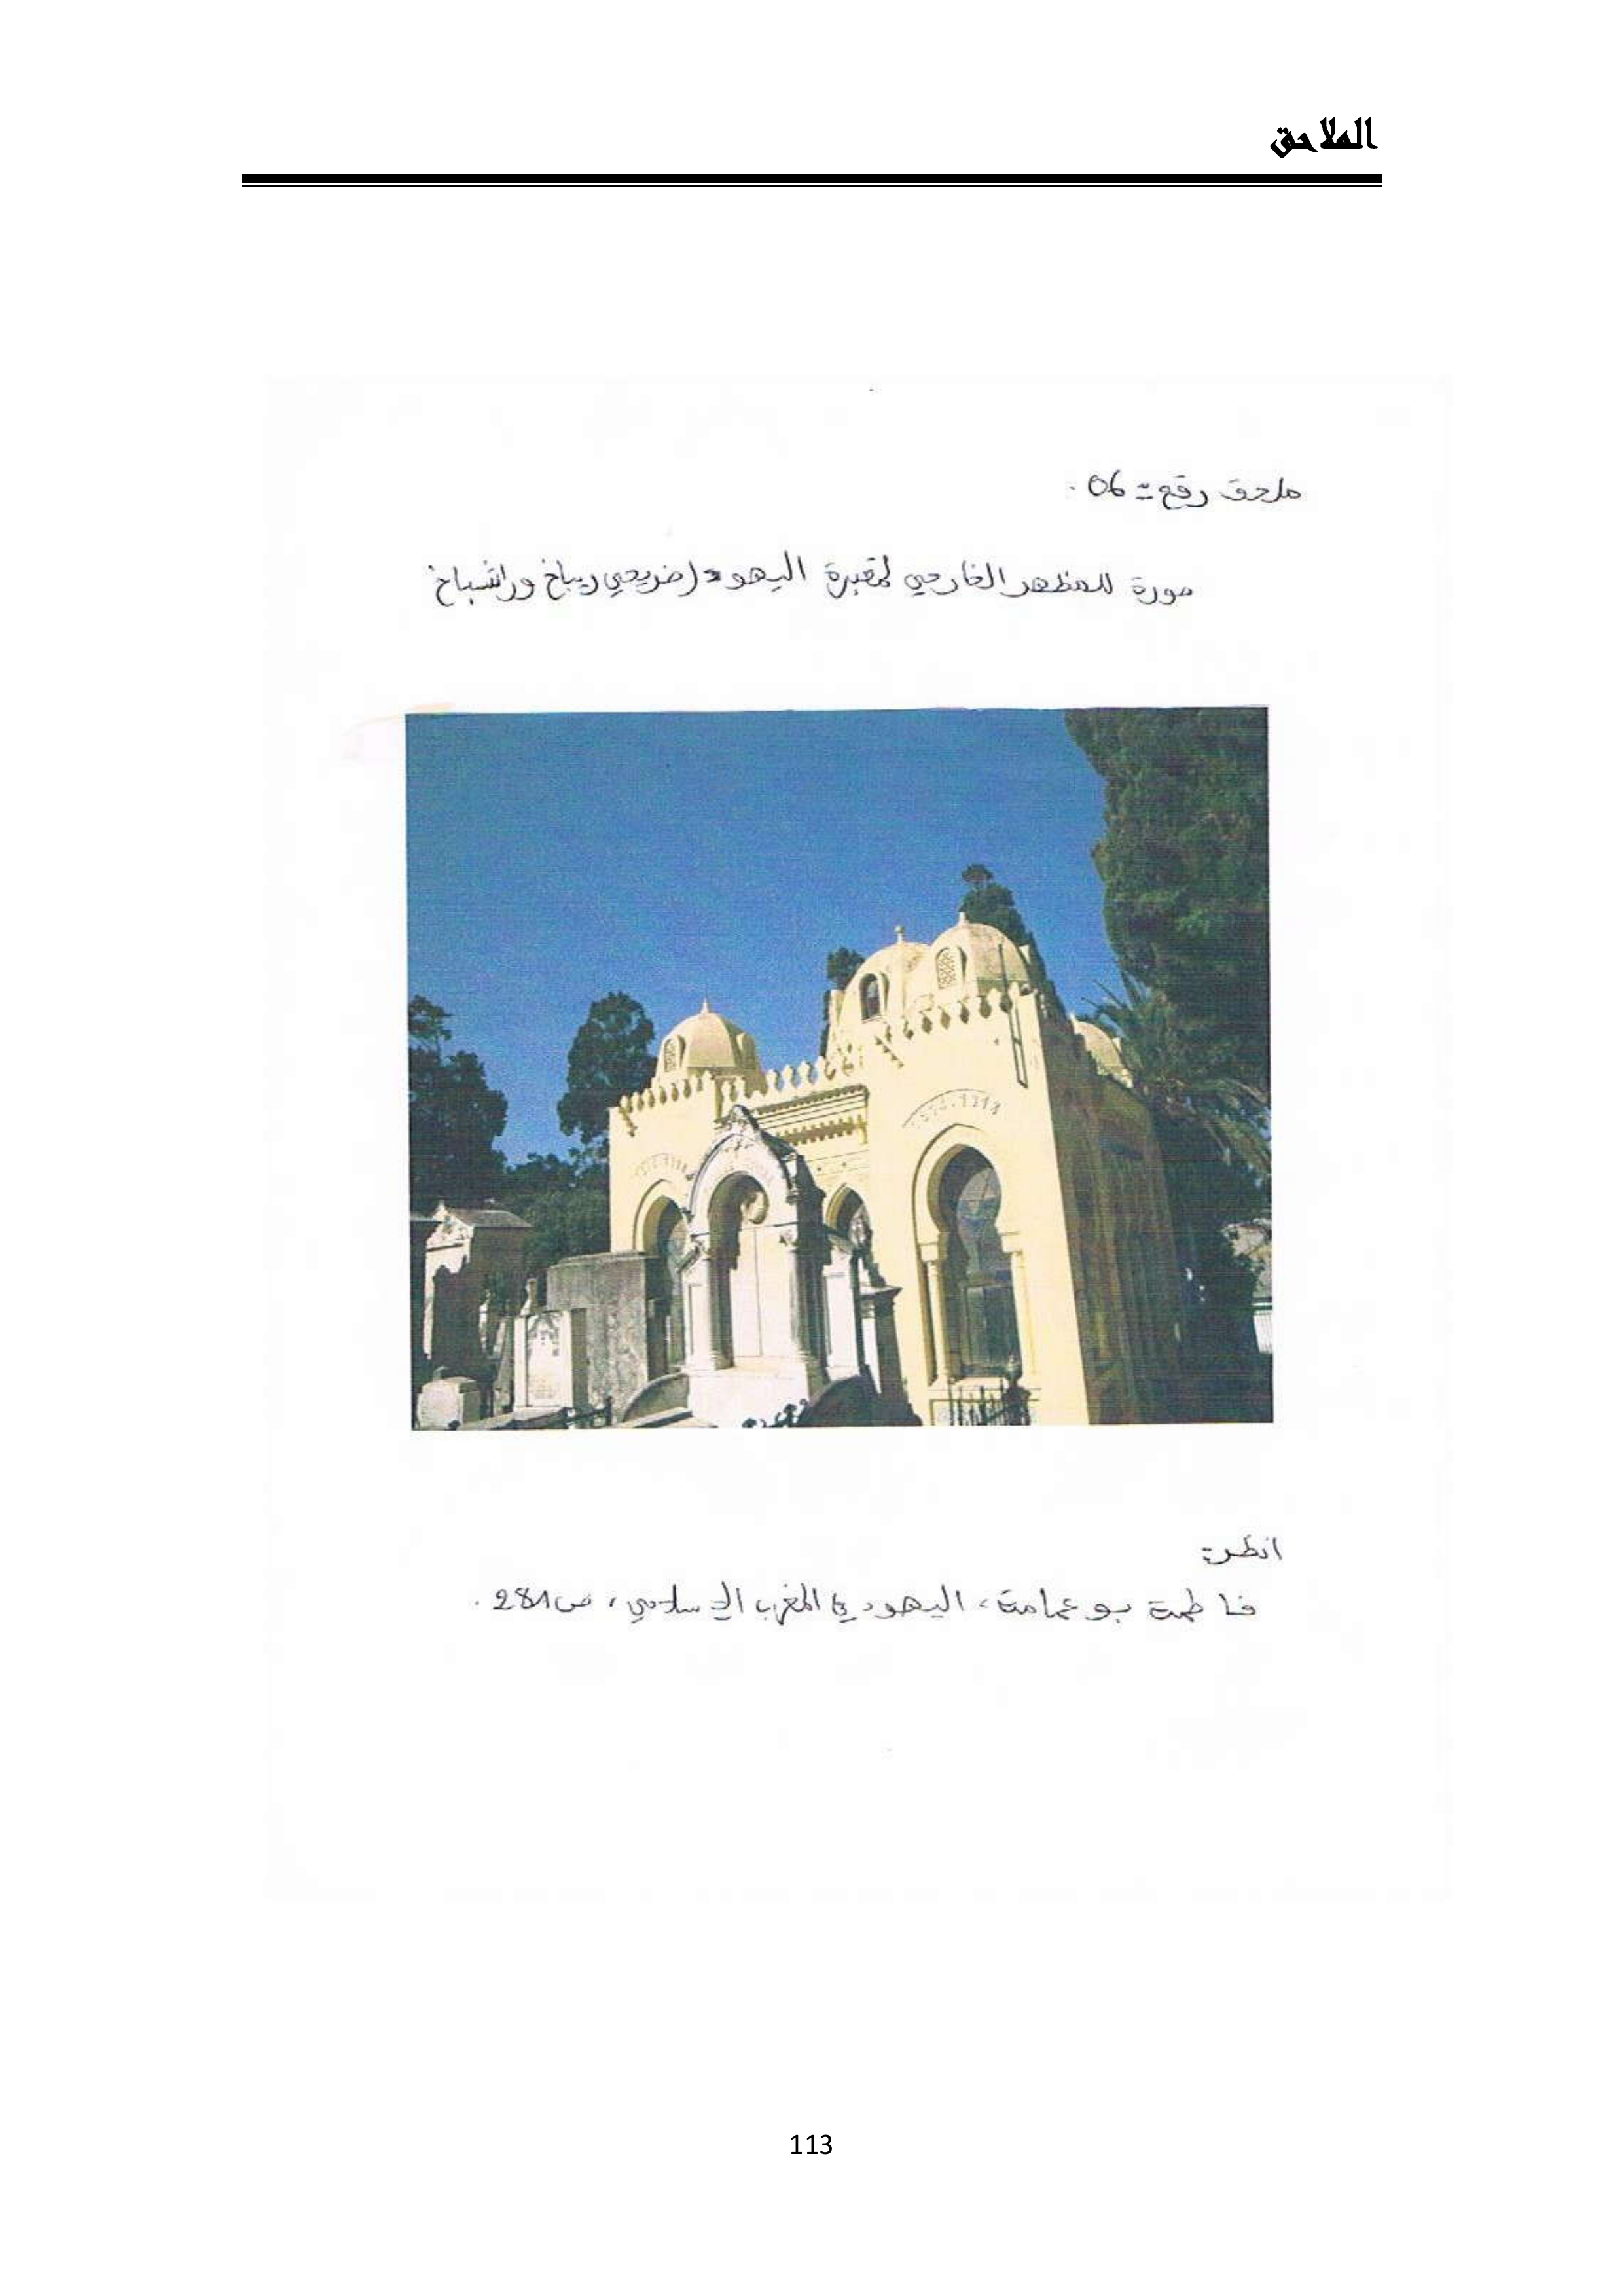 الملاحق
ملحق رقم: 06.
صورة للمظهر الخارجي لمقبرة اليهود (ضريحي ريباخ وراشباخ
1914.1918
انظر:
فاطمة بوعمامة، اليهود في المغرب الإسلامي، ص281.
113